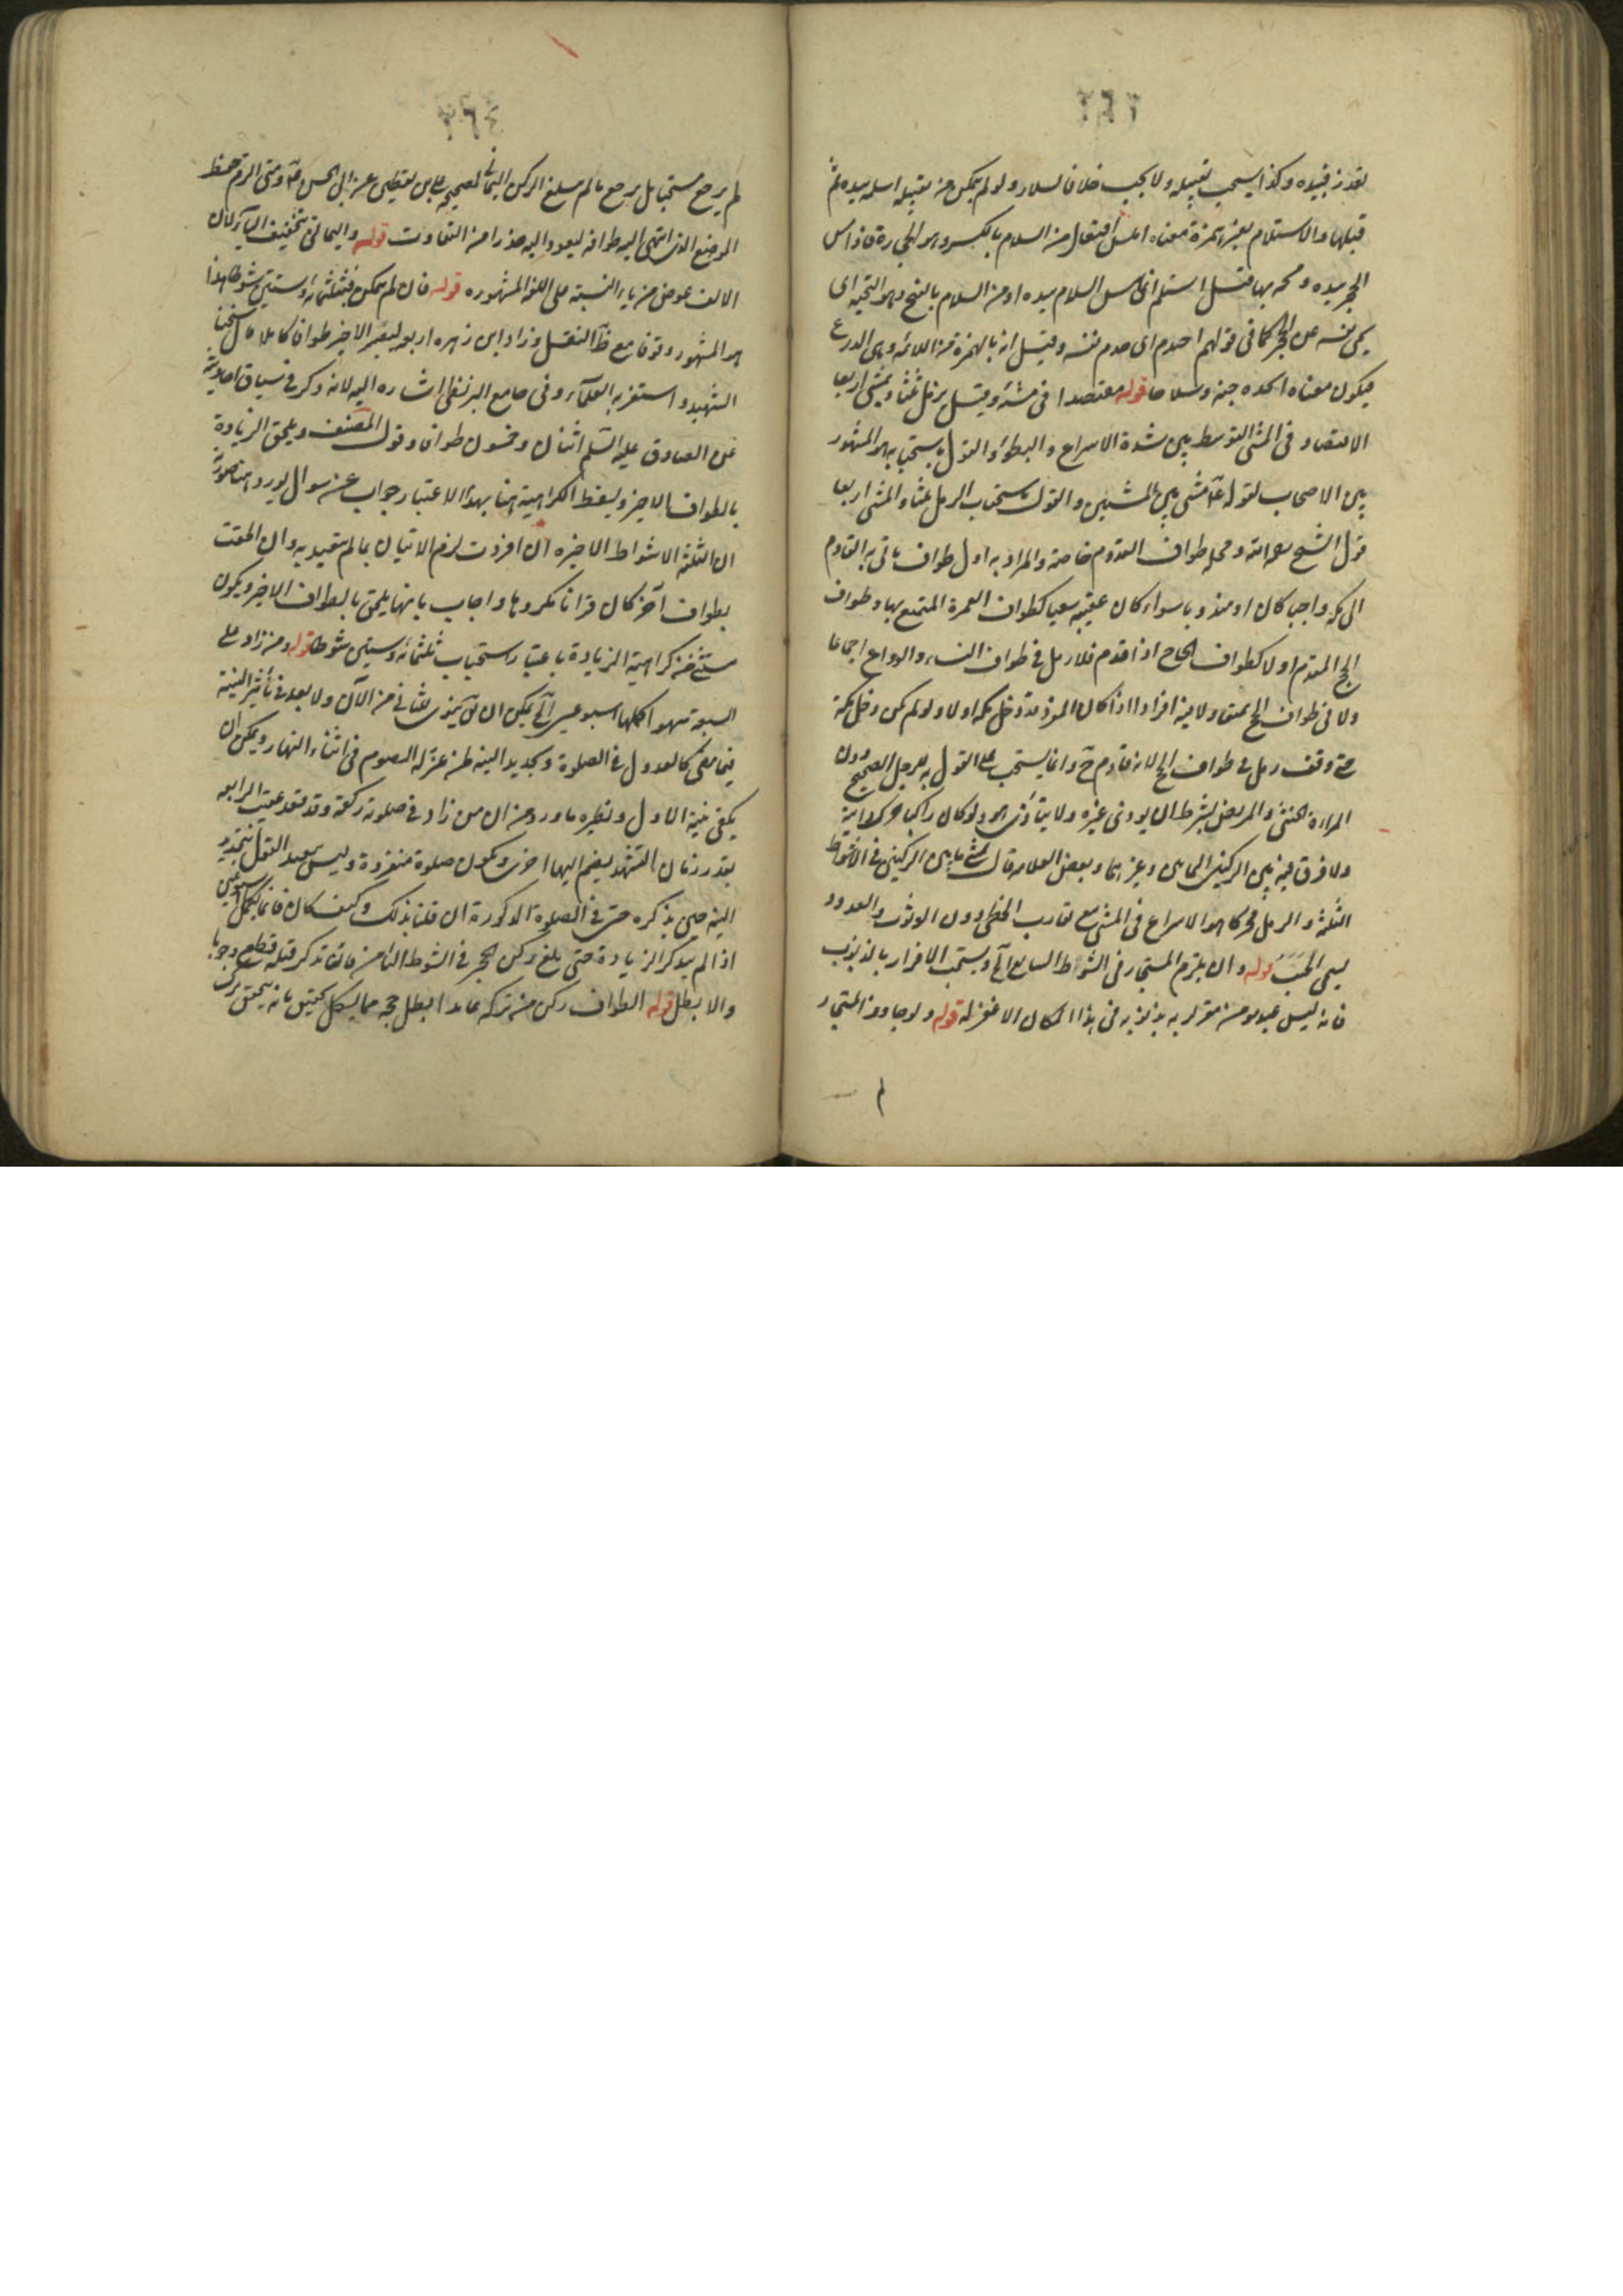 ٣٦٣
تعذر فبيده وكذا يستحب تقبيله ولا يجب خلافا لسلار ولو لم يتمكن من تقبيله استلمه بيده ثم
قبلها والاستلام بغير همزة معناه افتعال من السلام بالكسر وهو الحجارة فاذا مس
الحجر بيده ومسحه بها قيل استلم اى مس السلام بيده او من السلام بالفتح وهو التحية اى
يحيى نفسه عن الحجر كما في قولهم اختدم اى خدم نفسه وقيل انه بالهمزة من اللامة وهى الدرع
فيكون معناه اتخذه جنة وسلاحا قوله مقتصدا فى مشيه وقيل يرمل ثلثا ويمشى اربعا
الاقتصاد فى المشى التوسط بين شدة الاسراع والبطؤ والقول باستحبابه هو المشهور
بين الاصحاب لقوله ع مشى بين المشيين والقول باستحباب الرمل ثلثا والمشى اربعا
قول الشيخ رحمه الله ومحله طواف القدوم خاصة والمراد به اول طواف ياتى به القادم
الى مكة واجبا كان او مندوبا سواء كان عقيبه سعيا كطواف العمرة المتمتع بها وطواف
الحج المقدم اولا كطواف الحاج اذا قدم فلا رمل فى طواف النساء والوداع اجماعا
ولا فى طواف الحج تمتعا ولا فيه افرادا اذا كان المفرد قد دخل مكة اولا ولو لم يكن دخل مكة
حتى وقف رمل فى طواف الحج لانه قادم ح وانما يستحب على القول به للرجل الصحيح دون
المراءة والخنثى والمريض بشرط ان لا يوذى غيره ولا يتاذى هو ولو كان راكبا حرك دابته
ولا فرق فيه بين الركنين اليمانيين وغيرهما وبعض العامة قال يمشى ما بين الركنين فى الاشواط
الثلثة والرمل محركا هو الاسراع فى المشى مع تقارب الخطى دون الوثوب والعدو و
يسمى الخبب قوله وان يلتزم المستجار فى الشوط السابع الخ ويستحب الاقرار بالذنوب
فانه ليس عبد مومن مقر لربه بذنوبه فى هذا المكان الا غفر له قوله ولو جاوز المستجار
لم
٣٦٤
لم يرجع مستحبا بل يرجع ما لم يبلغ الركن اليمانى لصحيحة على بن يقطين عن ابى الحسن ع ومتى رجع حفظ
الموضع الذى انتهى اليه طوافه ليعود اليه حذرا من التفاوت قوله واليمانى بتخفيف الياء لان
الالف عوض من ياء النسبة على اللغة المشهورة قوله فان لم يتمكن فثلثمائة وستين شوطا هذا
هو المشهور وقوفا مع ظ النقل وزاد ابن زهره اربعة ليصير الاخير طوافا كاملا قال شيخنا
الشهيد واستقربه العلامة وفى جامع البزنطى اشاره اليه لانه ذكر فى سياق احاديثه
عن الصادق عليه السلم اثنان وخمسون طوافا وقول المصنف ويلحق الزيادة
بالطواف الاخير ويسقط الكراهية هنا بهذا الاعتبار جواب عن سوال يورد هنا صورته
ان الثلثة الاشواط الاخيرة ان افردت لزم الاتيان بما لم يتعبد به وان الحقت
بطواف آخر كان قرانا مكروها واجاب بانها يلحق بالطواف الاخير ويكون
مستثنى من كراهية الزيادة باعتبار استحباب ثلثمائة وستين شوطا قوله ومن زاد على
السبعة سهوا اكملها اسبوعين الخ يمكن ان ينوى للثانى من الآن ولا بعد فى تأثير النية
فيما مضى كالعدول فى الصلوة وتجديد النية لمن عن له الصوم فى اثناء النهار ويمكن ان
يكفى نية الاول ونظيره ما ورد من ان من زاد فى صلوته ركعة وقد قعد عقيب الرابعة
بقدر زمان التشهد يضم اليها اخرى وتكون صلوة منفردة وليس ببعيد القول بتجديد
النية حين يذكره حتى فى الصلوة المذكورة ان قلنا بذلك وكيف كان فانما يكمل اسبوعين
اذا لم يتذكر الزيادة حتى بلغ ركن الحجر فى الشوط الثامن فان تذكر قبله قطع وجوبا
والا بطل قوله الطواف ركن من تركه عامدا بطل حجه مما يشكل تحقيقه بانه يتحقق ترك